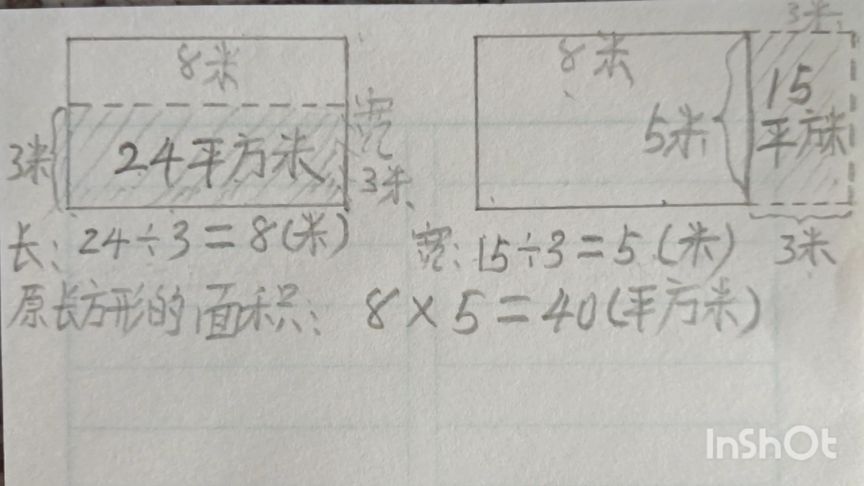 3米
8米
8米
宽
3米
24平方米
3米
5米
15
平方米
长：24÷3=8(米)
宽：15÷3=5(米)
3米
原长方形的面积：8×5=40(平方米)
InShOt